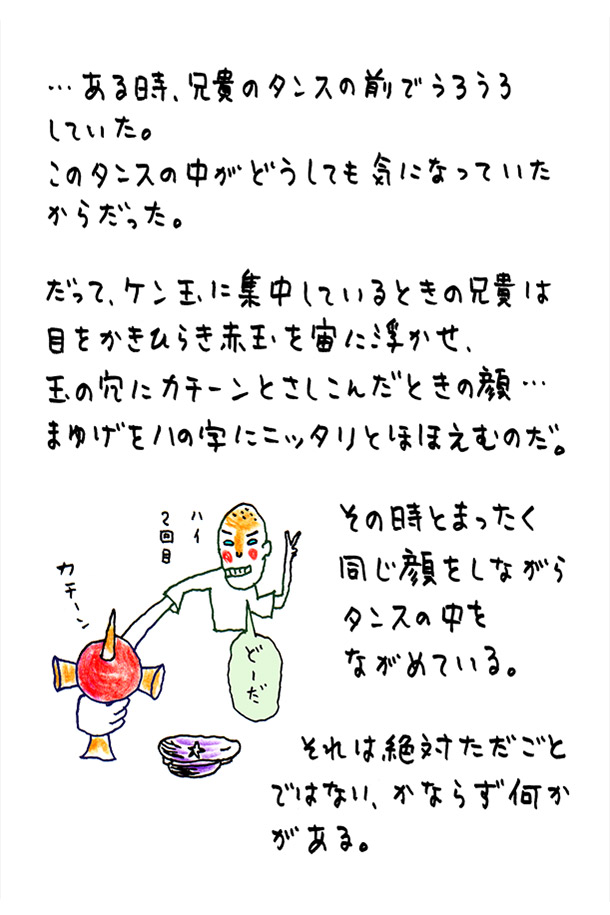 …ある時、兄貴のタンスの前でうろうろ
していた。
このタンスの中がどうしても気になっていた
からだった。
だって、ケン玉に集中しているときの兄貴は
目をかきひらき赤玉を宙に浮かせ、
玉の穴にカチーンとさしこんだときの顔…
まゆげをハの字にニッタリとほほえむのだ。
その時とまったく
同じ顔をしながら
タンスの中を
ながめている。
ハイ
2回目
カチーン
どーだ
それは絶対ただごと
ではない、かならず何か
がある。